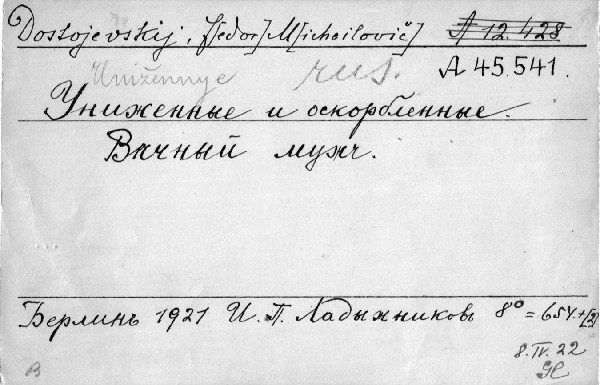 Dostojevskij, F[edor] M[ichailovič] A 12.428
Unižennye rus. A 45.541.
Униженные и оскорбленные.
Вѣчный мужъ.
Берлинъ 1921 И. П. Ладыжниковъ 8° = 654.+[2]
8.IV.22
B